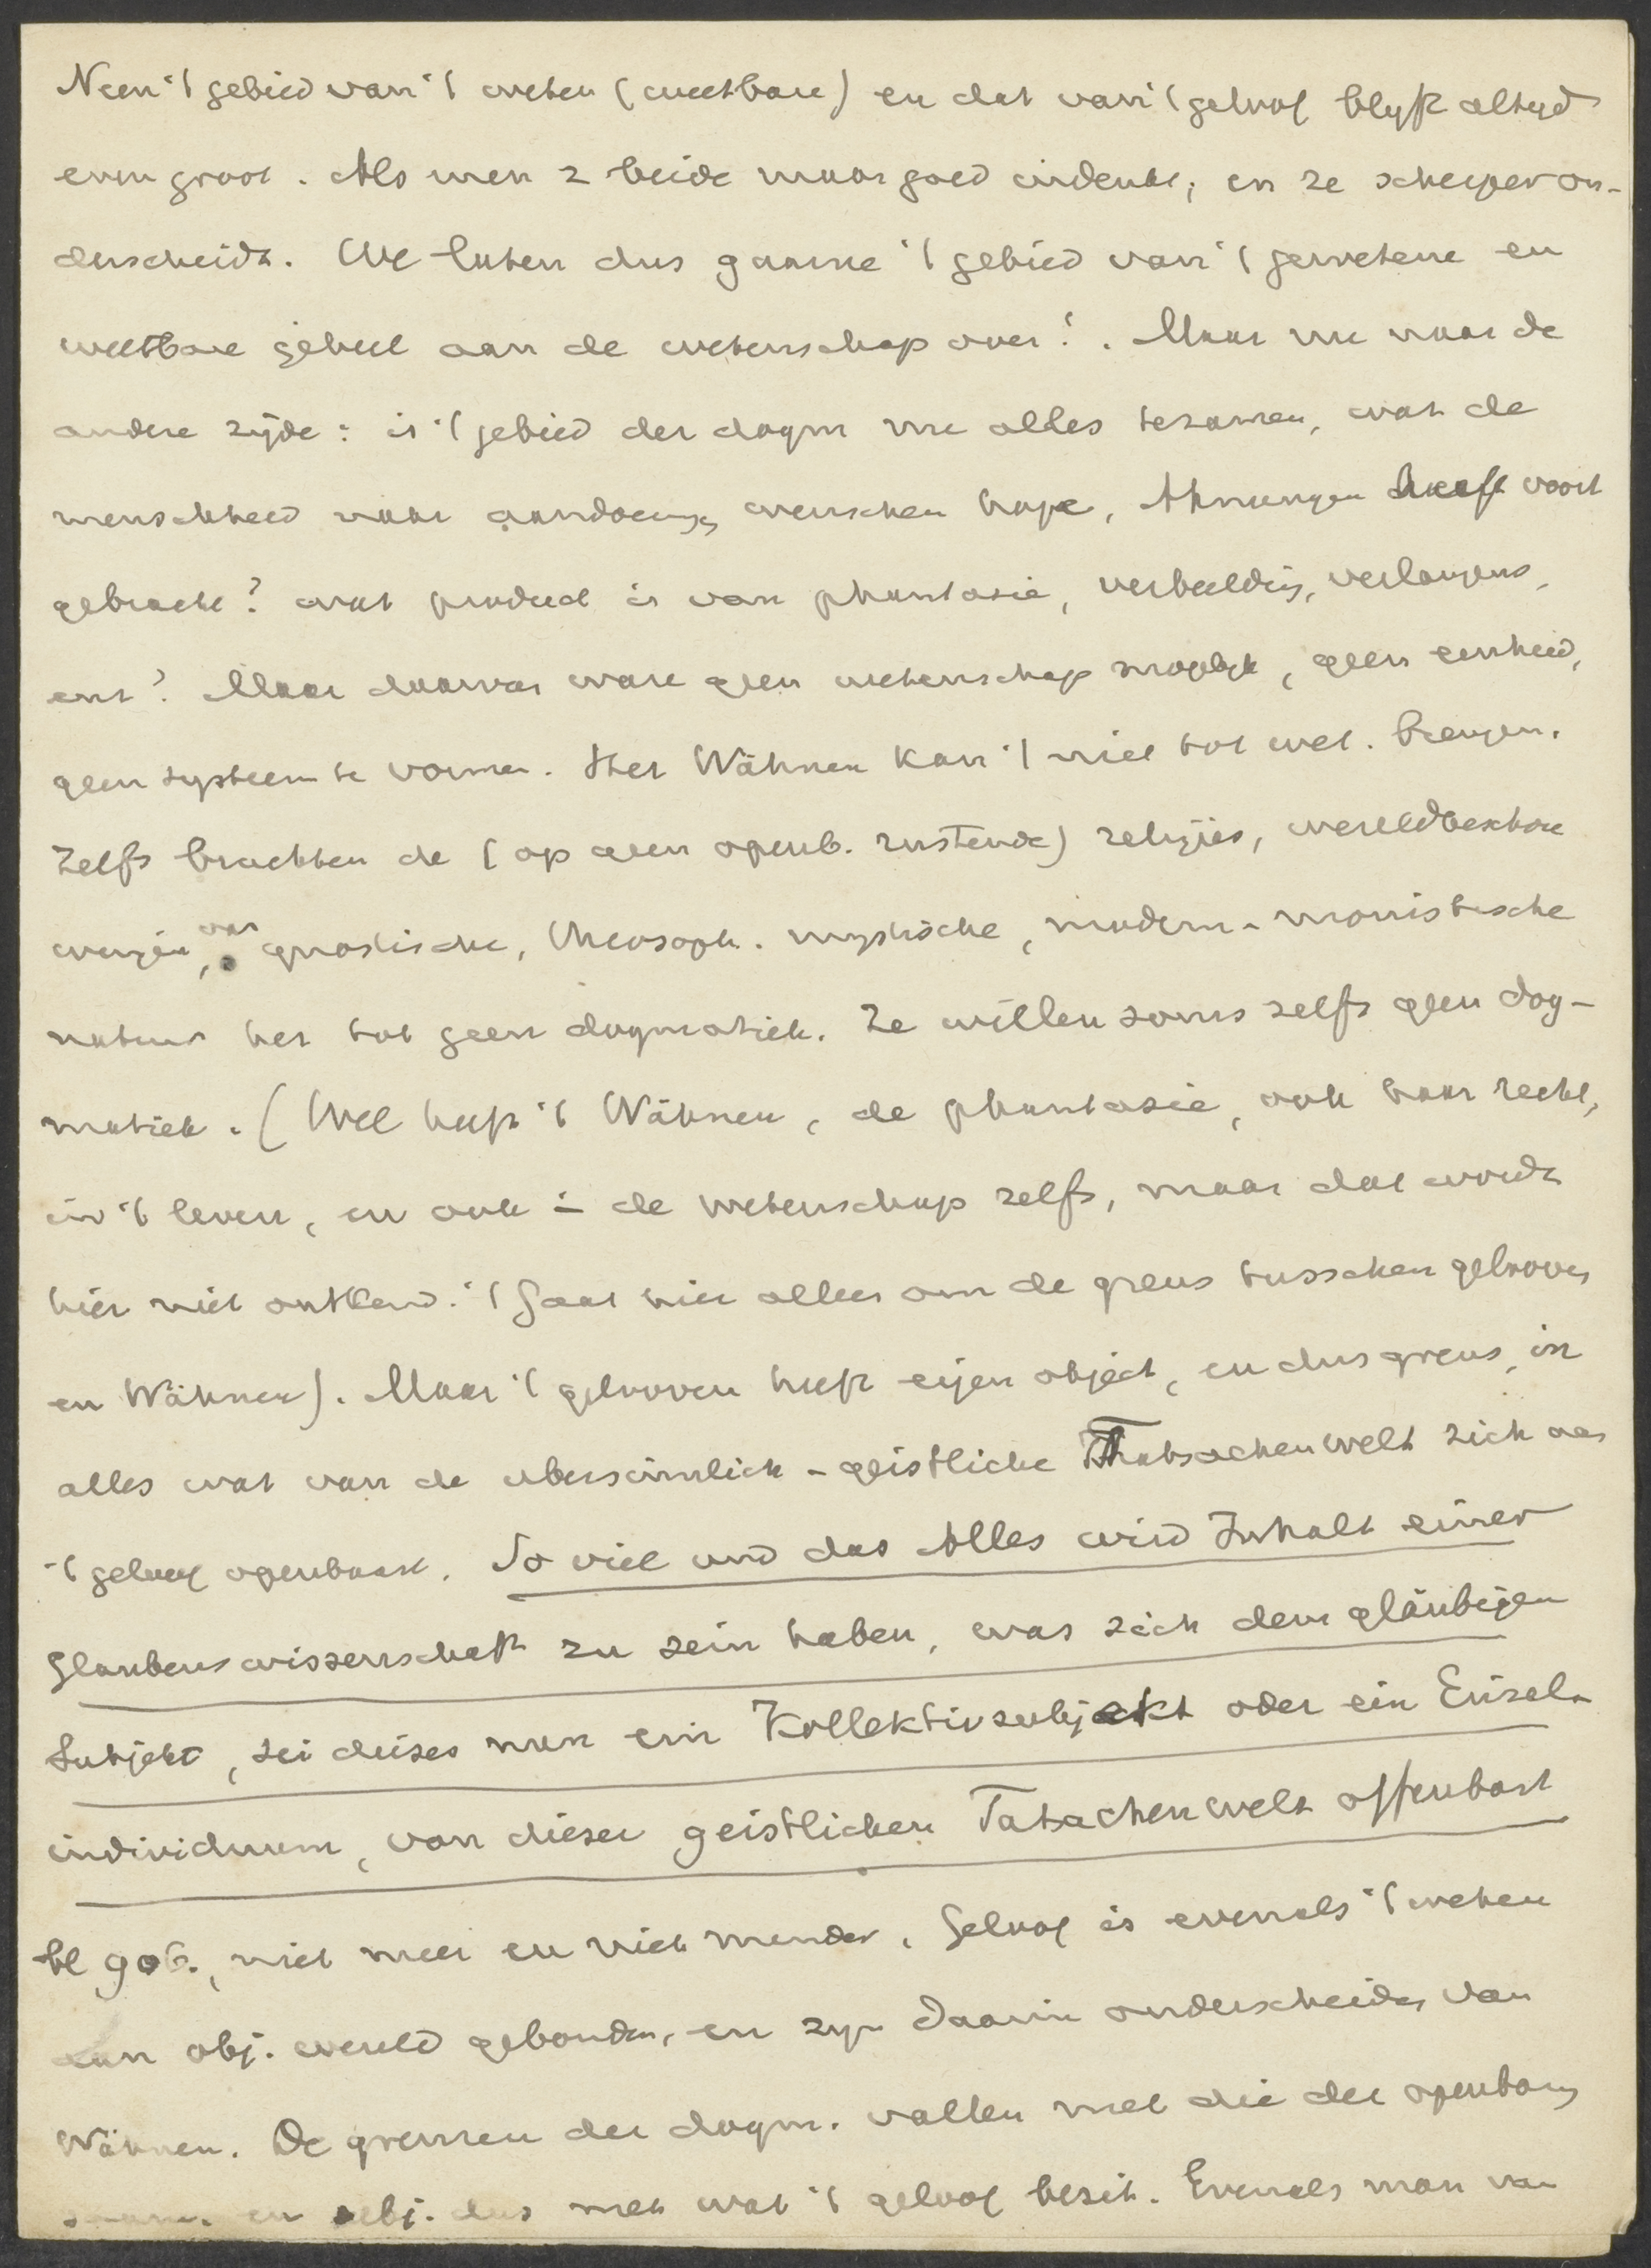 Neen 't gebied van 't weten (weetbare) en dat van 't geloof blyft altyd
even groot. Als men z beide maar goed indenkt, en ze scherper on-
derscheidt. We laten dus gaarne 't gebied van 't gewetene en
weetbare geheel aan de wetenschap over!. Maar nu naar de
andere zijde: is 't gebied der dogm nu alles tezamen, wat de
menschheid naar aandoening, wenschen hope, Ahnungen heeft voort
gebracht? wat product is van phantasie, verbeelding, verlangens,
enz? Maar daarvan ware geen wetenschap mogelyk, geen eenheid,
geen systeem te vormen. Het Wähnen kan 't niet tot wet. brengen.
Zelfs brachten de (op geen openb. rustende) religies, wereldbeschou
wingen, van gnostische, theosoph. mystische, modern-monistische
natuur het tot geen dogmatiek. Ze willen soms zelfs geen dog-
matiek. (Wel heeft 't Wähnen, de phantasie, ook haar recht,
in 't leven, en ook in de wetenschap zelfs, maar dat wordt
hier niet ontkend. 't Gaat hier alleen om de grens tusschen gelooven
en Wähnen). Maar 't gelooven heeft eigen object, en dus grens, in
alles wat van de ubersinnlich-geistliche Thatsachenwelt zich aan
't geloof openbaart. So viel und das Alles wird Inhalt einer
Glaubenswissenschaft zu sein haben, was sich dem gläubigen
Subjekt, sei dieses nun ein Kollektivsubjekt oder ein Einzel-
individuum, von dieser geistlichen Tatsachenwelt offenbart
bl 906., niet meer en niet minder. Geloof is evenals 't weten
aan obj. wereld gebonden, en zyn daarin onderscheiden van
Wähnen. De grenzen der dogm. vallen met die der openbaring
en subj. dus met wat 't geloof bezit. Evenals man van